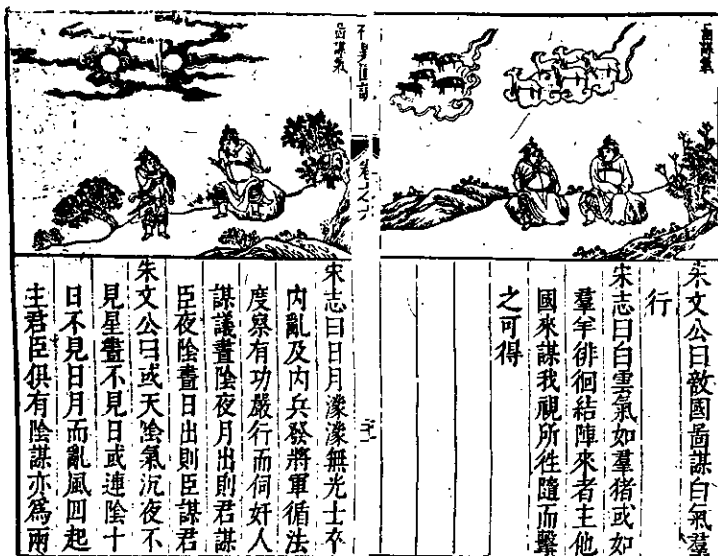 啚謀氣
朱文公曰敵國啚謀白氣羣
行
宋志曰白雲氣如羣猪或如
羣羊徘徊結陣來者主他
國來謀我視所徃隨而擊
之可得
卷之六
啚謀氣
宋志曰日月濛濛無光士卒
内亂及内兵發將軍循法
度察有功嚴行而伺奸人
謀議晝陰夜月出則君謀
臣夜陰晝日出則臣謀君
朱文公曰或天陰氣沉夜不
見星晝不見日或連陰十
日不見日月而亂風四起
主君臣俱有陰謀亦為兩